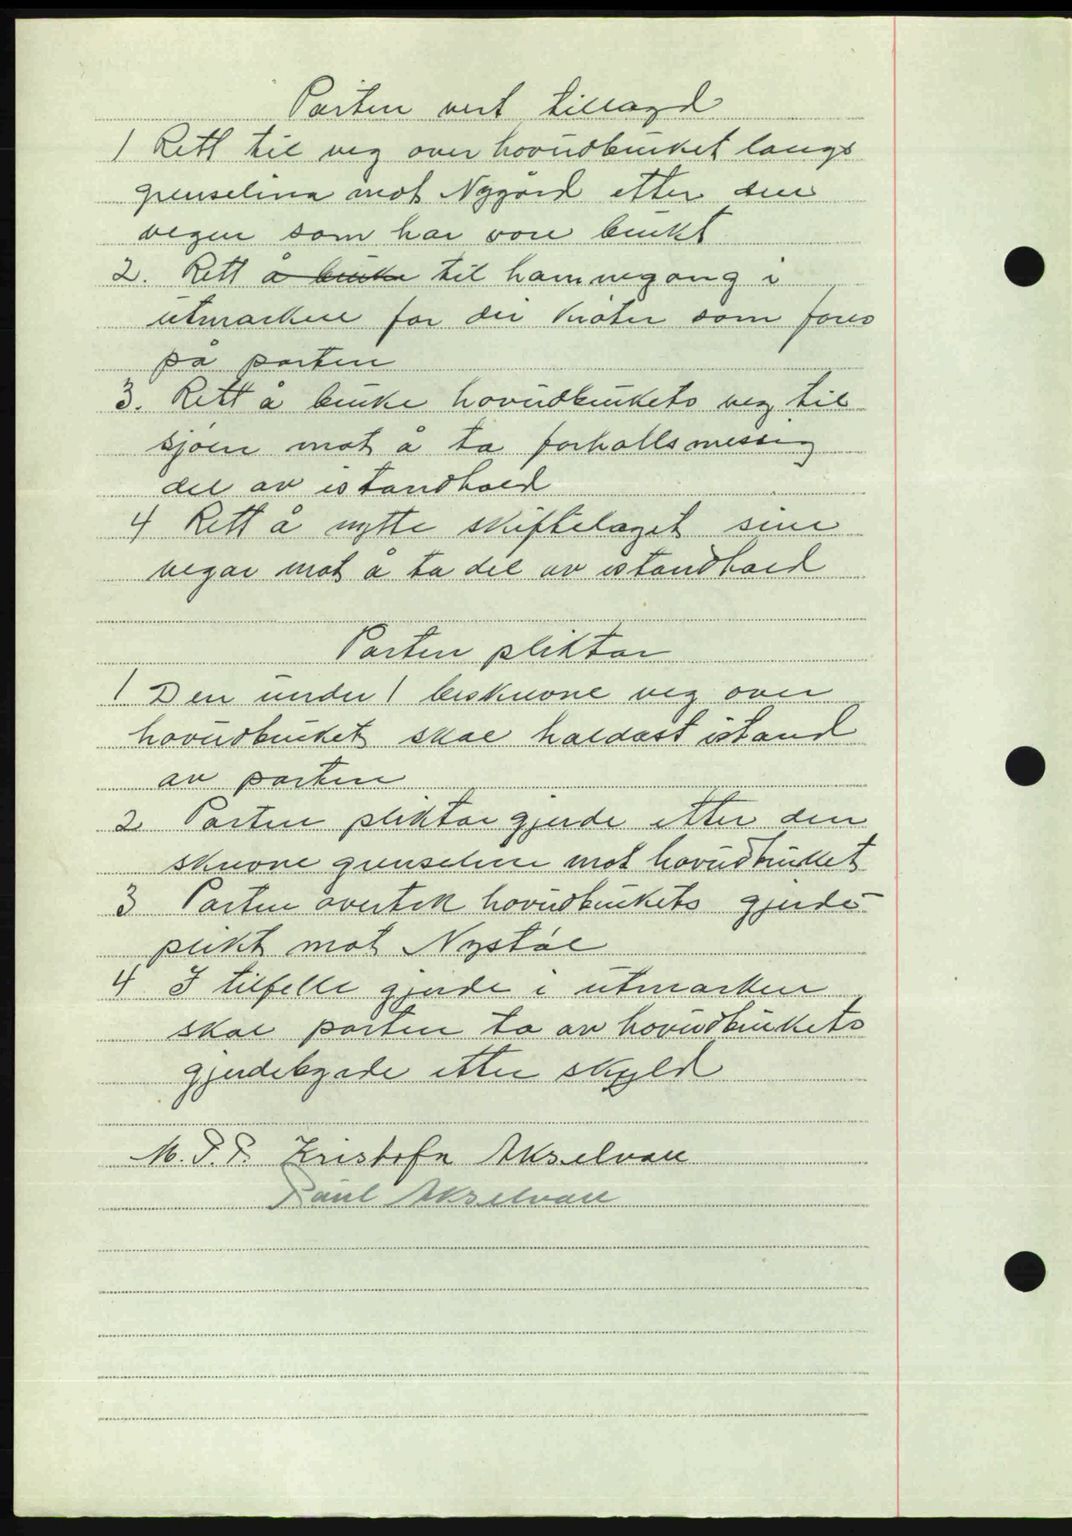 Parten vert tillagd
1 Rett til veg over hovudbruket langs
grenselina mot Nygård etter den
vegen som har vore brukt
2. Rett å bruke til hamnegang i
utmarken for dei krøter som fores
på parten
3. Rett å bruke hovudbrukets veg til
sjøen mot å ta forhallsmessig
del av istandhald
4 Rett å nytte skiftelaget sine
vegar mot å ta del av istandhald
Parten pliktar
1 Den under 1 beskrevne veg over
hovudbruket skal haldast istand
av parten
2 Parten pliktar gjerde etter den
skrevne grenseline mot hovudbruket
3 Parten overtek hovudbrukets gjerde-
plikt mot Nystøl
4 I tilfelle gjerde i utmarken
skal parten ta av hovudbrukets
gjerdebyrde etter skyld
M. P. P. Kristofa Akselvoll
Paul Akselvoll